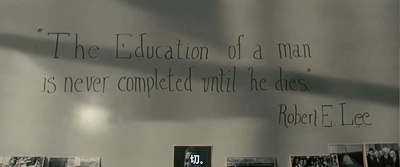 "The Education of a man
is never completed until he dies."
Robert E. Lee
切。